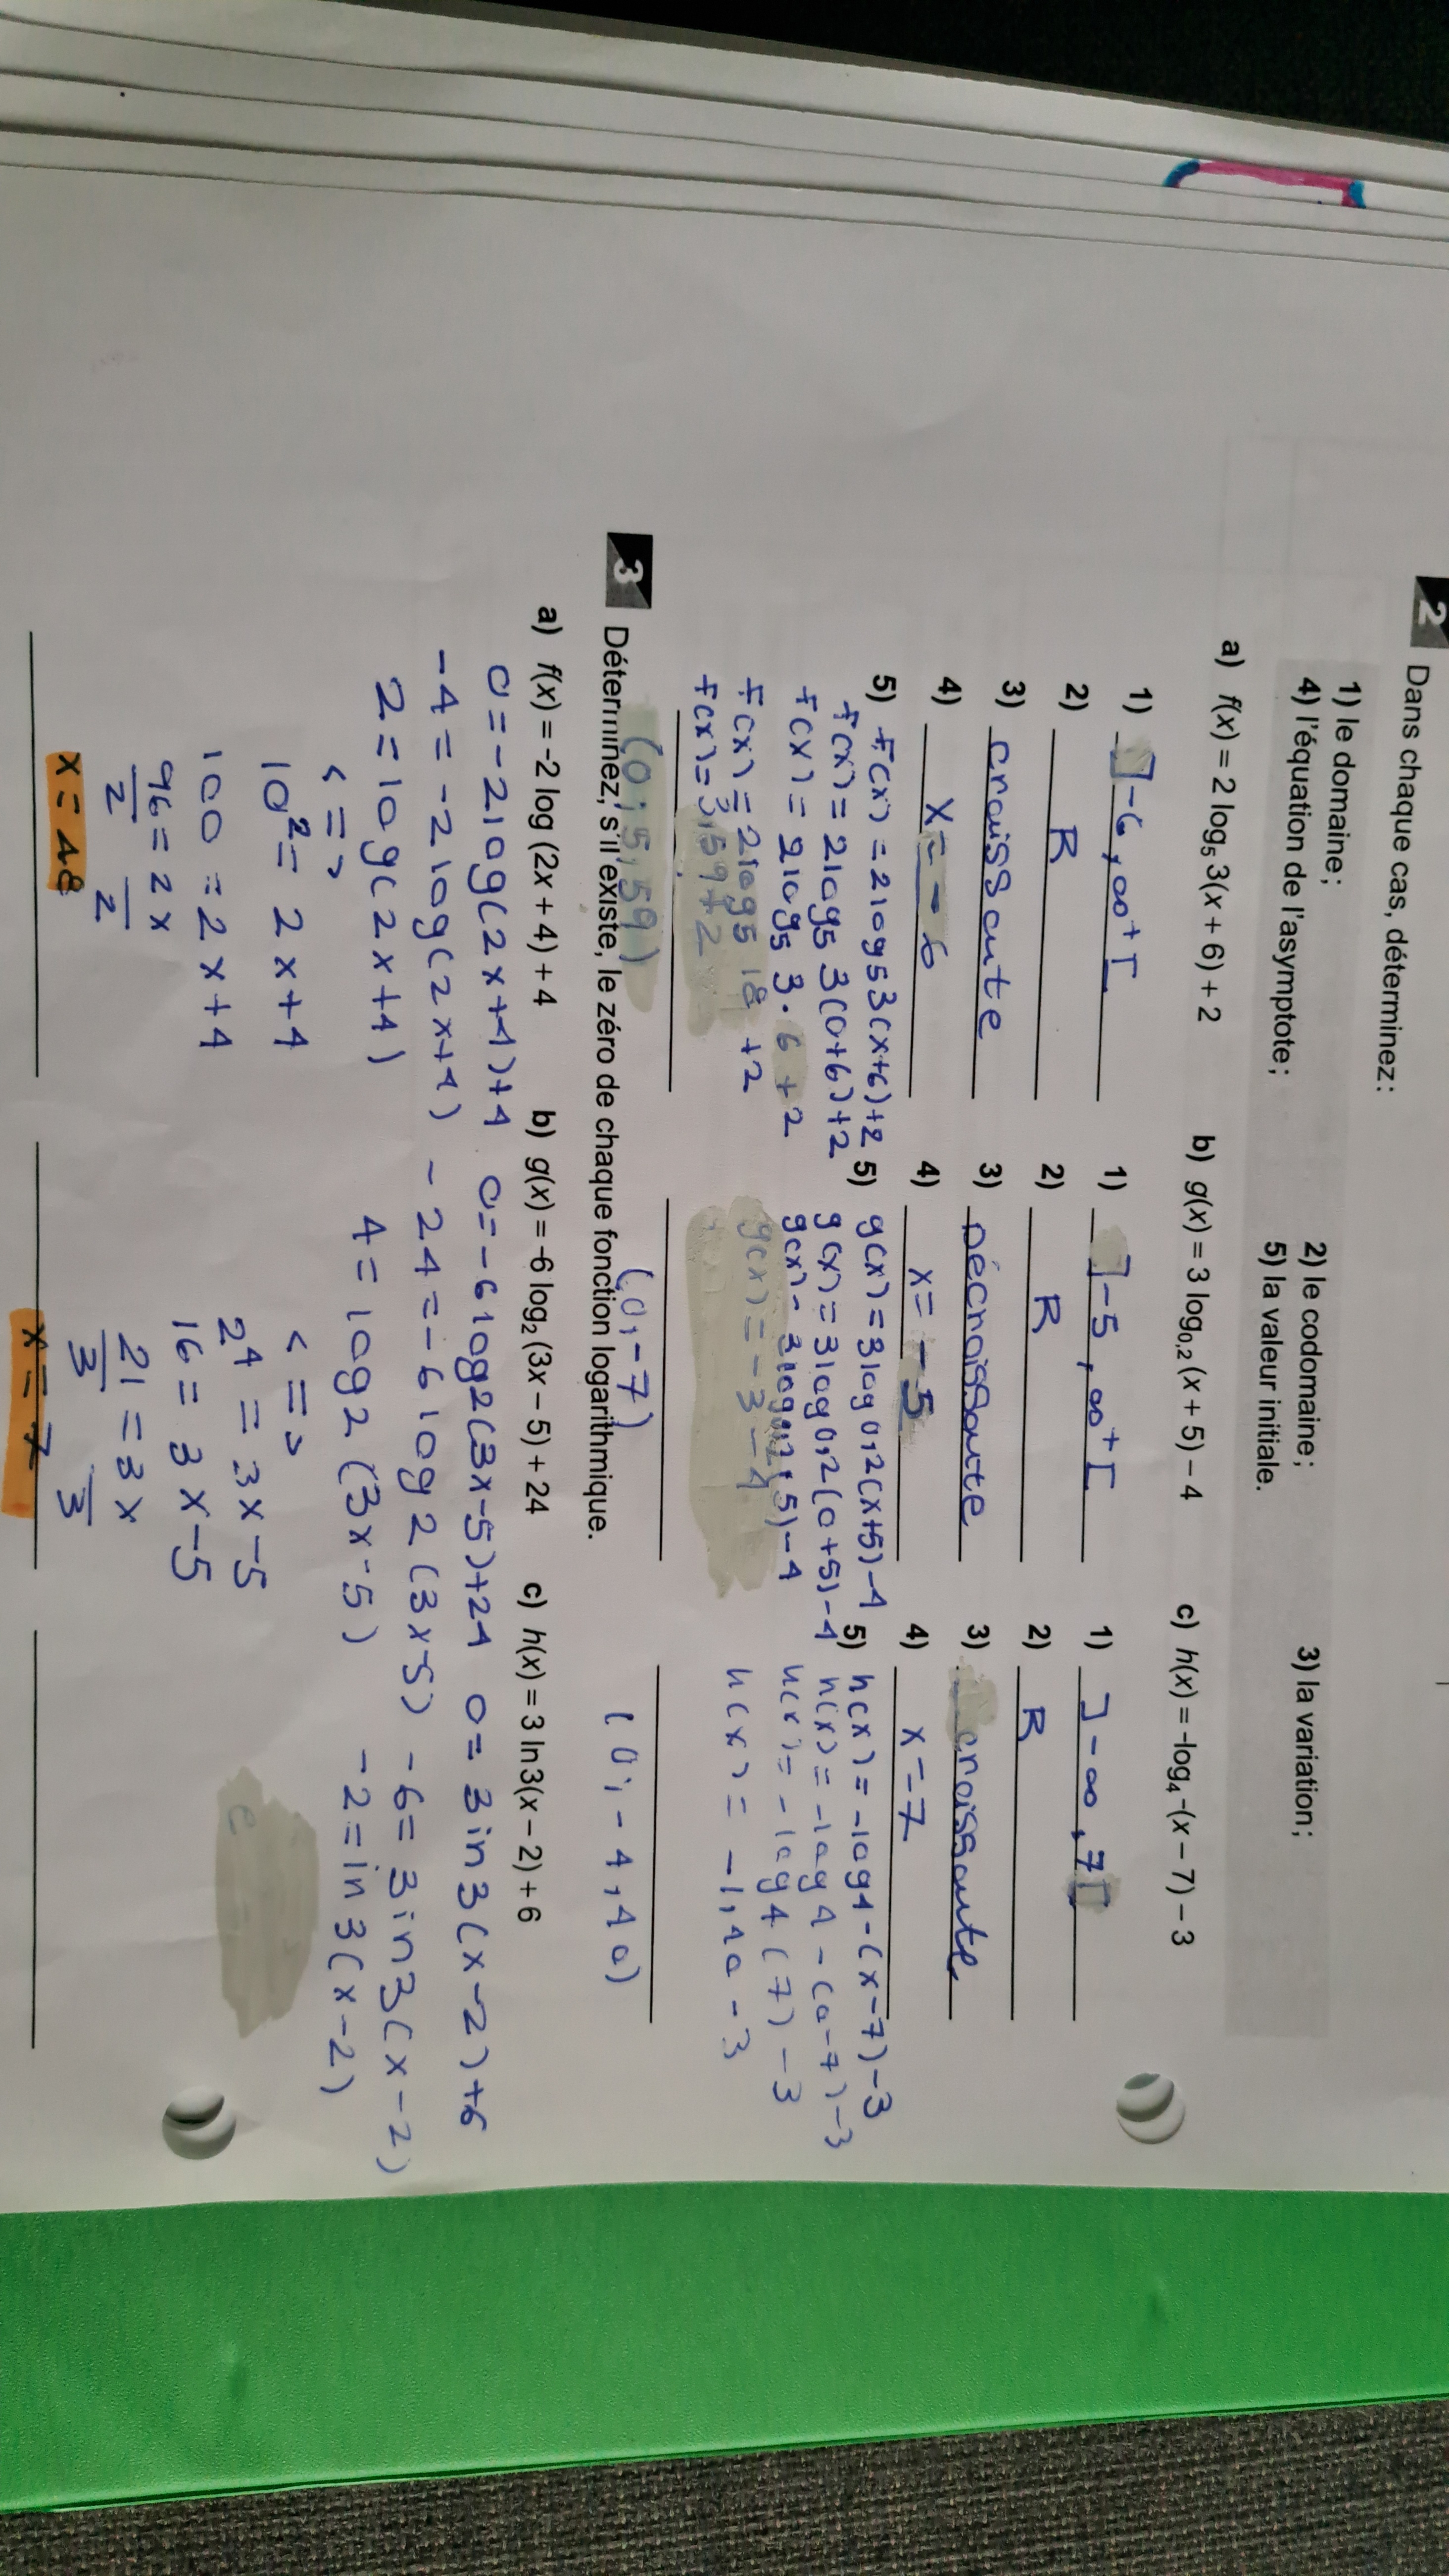 2 Dans chaque cas, déterminez :
1) le domaine ; 2) le codomaine ; 3) la variation ;
4) l'équation de l'asymptote ; 5) la valeur initiale.
a) f(x) = 2 log₅ 3(x + 6) + 2
1) ]-6, ∞⁺[
2) R
3) croissante
4) x = -6
5) f(x) = 2log5 3(x+6)+2
f(x) = 2log5 3(0+6)+2
f(x) = 2log5 3·6+2
f(x) = 2log5 18 +2
f(x) = 3,59+2
(0; 5,59)
b) g(x) = 3 log₀,₂ (x + 5) – 4
1) ]-5, ∞⁺[
2) R
3) Décroissante
4) x = -5
5) g(x) = 3log0,2(x+5)-4
g(x) = 3log0,2(0+5)-4
g(x) = -3-4
(0,-7)
c) h(x) = -log₄ -(x – 7) – 3
1) ]-∞, 7[
2) R
3) croissante
4) x=7
5) h(x) = -log4-(x-7)-3
h(x) = -log4-(0-7)-3
h(x) = -log4(7)-3
h(x) = -1,40-3
(0; -4,40)
3 Déterminez, s'il existe, le zéro de chaque fonction logarithmique.
a) f(x) = -2 log (2x + 4) + 4
0=-2log(2x+4)+4
-4=-2log(2x+4)
2=log(2x+4)
<=>
10²= 2x+4
100=2x+4
96=2x
2 2
x=48
b) g(x) = -6 log₂ (3x – 5) + 24
0=-6log2(3x-5)+24
-24=-6log2(3x-5)
4=log2(3x-5)
<=>
2⁴=3x-5
16=3x-5
21=3x
3 3
x=7
c) h(x) = 3 ln 3(x – 2) + 6
0=3ln3(x-2)+6
-6=3ln3(x-2)
-2=ln3(x-2)
e